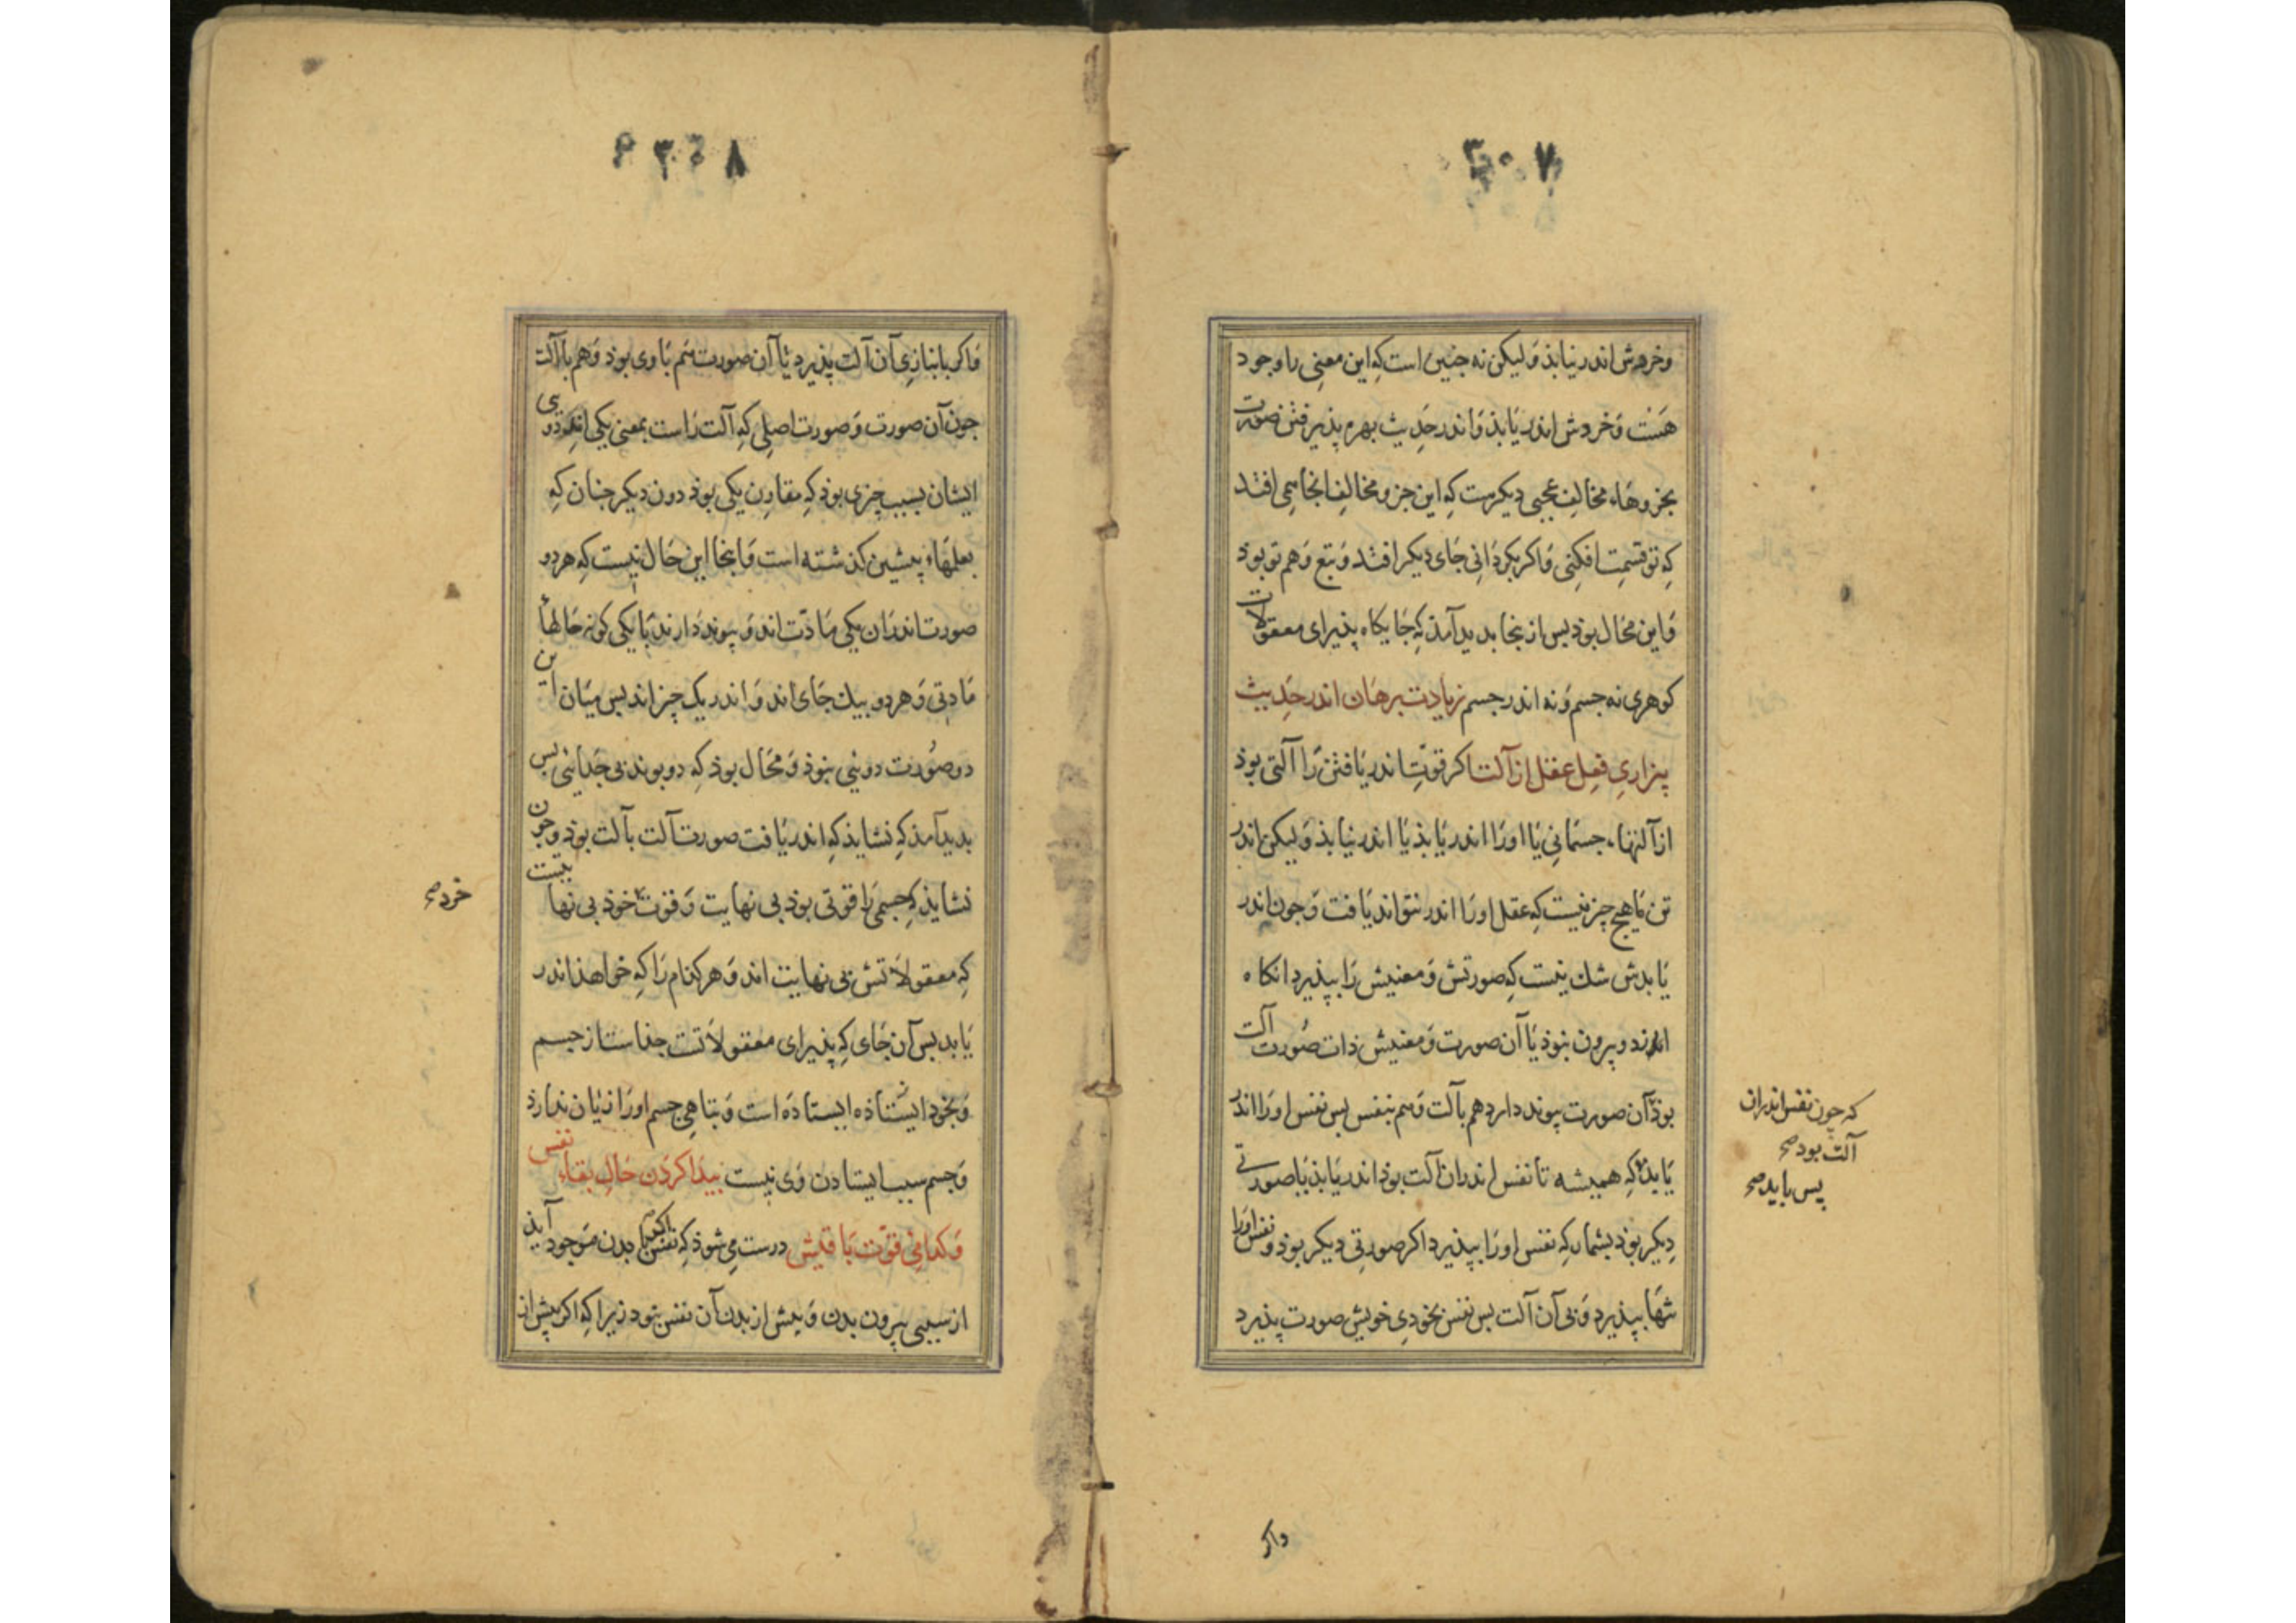 ۳۰۷
وخردش اندر نیابذ وَلیکن نه جنین است کِه این معنی را وجود
هَست وَخردش اندر یَابذ وَاندر حَدیث بهره پذیرفتن صورت
بجزوهَاء مخالِف عجبی دیکرست کِه این جزو مخالِف انجا می افتد
کِه تو قسمت افکنی وَاکر بکردَانی جَای دیکر افتد وَتبع وَهم تو بوذ
وَاین محَال بوذ بس از ینجا بدید آمذ کِه جَایکاه پذیرای معقولات
کوهری نه جسم وَنه اندر جسم زیادت برهَان اندر حَدیث
بیزاریِ فعِل عقل از آلت اکر قوّتِ اندر یَافتن رَا آلتی بوذ
از آلتهَاء جسمَانی یَا اورَا اندر یَابذ یَا اندر نیابذ وَلیکن اندر
تن مَا هیج چیز نیست کِه عقل اورَا اندر نتواند یَافت وَجون اندر
یَابدش شك نیست کِه صورتش وَمعنیش رَا بپذیرد انکاه
از دو بیرون نبوذ یَا آن صورت وَمعنیش ذات صُورت آلت
بوذ آن صورت پیوند دارد هم بآلت وَهم بنفس بس نفس اورَا اندر
یَابذ که همیشه تا نفس اندران آلت بوذ اندر یَابذ یَا صورتی
دِیکر بوذ بشمار کِه نفس اورَا بپذیرد اکر صورتِی دیکر بوذ ونفس اورَا
تنهَا بپذیرد وَبی آن آلت بس نفس بخودیِ خویش صورت پذیرد
که جون نفس اندران
آلت بود صح
پس باید صح
واکر
۳۰۸
وَاکر بانبازیِ آن آلت پذیرد تا آن صورت هم بَاوی بوذ وَهم بَاآلت
جون آن صورت وَصورت اصلی کِه آلت رَاست بمعنی یکی اند دوی
ایشان بسبب چیزی بوذ کِه مقارِن یکی بوذ دون دیکر جنان کِه
بعلمهَاء پیشین کذشته است وَاینجا این حَال نیست کِه هر دو
صورت اندرَان یکی مَادّت اند وَپیوند دَارند بَایکی کونه حَالهَاْ
مَادتی وَهر دو بیك جَای اند وَاندر یک چیز اند بس میَان این
دو صُورت دویی نبوذ وَمحَال بوذ کِه دو بوند بی جُدَایی بس
بدید آمذ کِه نشایذ کِه اندر یَافت صورت آلت بآلت بوذ وجون
نشایذ کِه جسمی رَا قوتی بوذ بی نهایت وَقوت خوذ بی نهایتست
کِه معقولاَتش بی نهایت اند وَهر کذام رَا کِه خواهذ اندر
یَابد بس آن جَای کِه پذیرای معقولاَتست جذاست از جسم
وَبخود ایستاذه ایستاذَه است وَتباهیِ جسم اورَا زیَان ندارذ
وَجسم سبب ایستادن وَی نیست بیدَا کرَدن حَالِ بقاء نفس
وَکدامیِ قوّت بَاقیش درست می شوذ کِه نفس با بدن مَوجود آیذ
از سببی بیرون بدن وَپیش از بدن آن نفس نبود زیرا کِه اکر پیش از
خرد صح